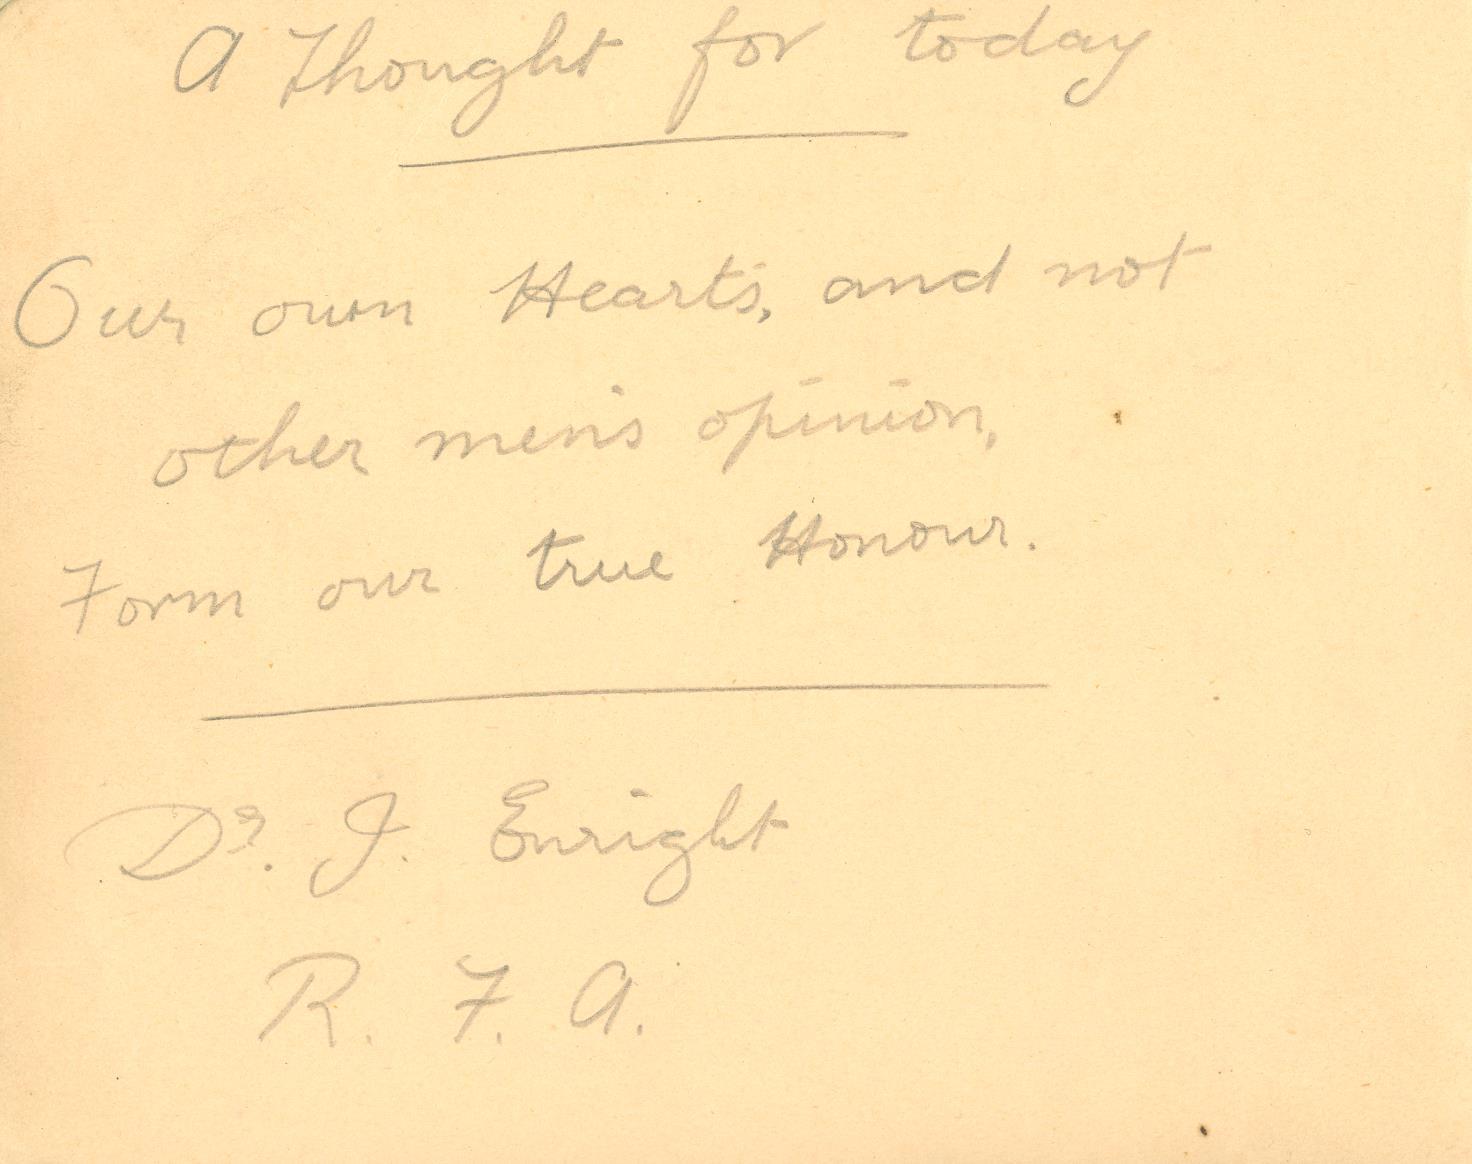 A Thought for today
Our own Hearts, and not
other men's opinion,
Form our true Honour.
Dr. J. Enright
R. F. A.